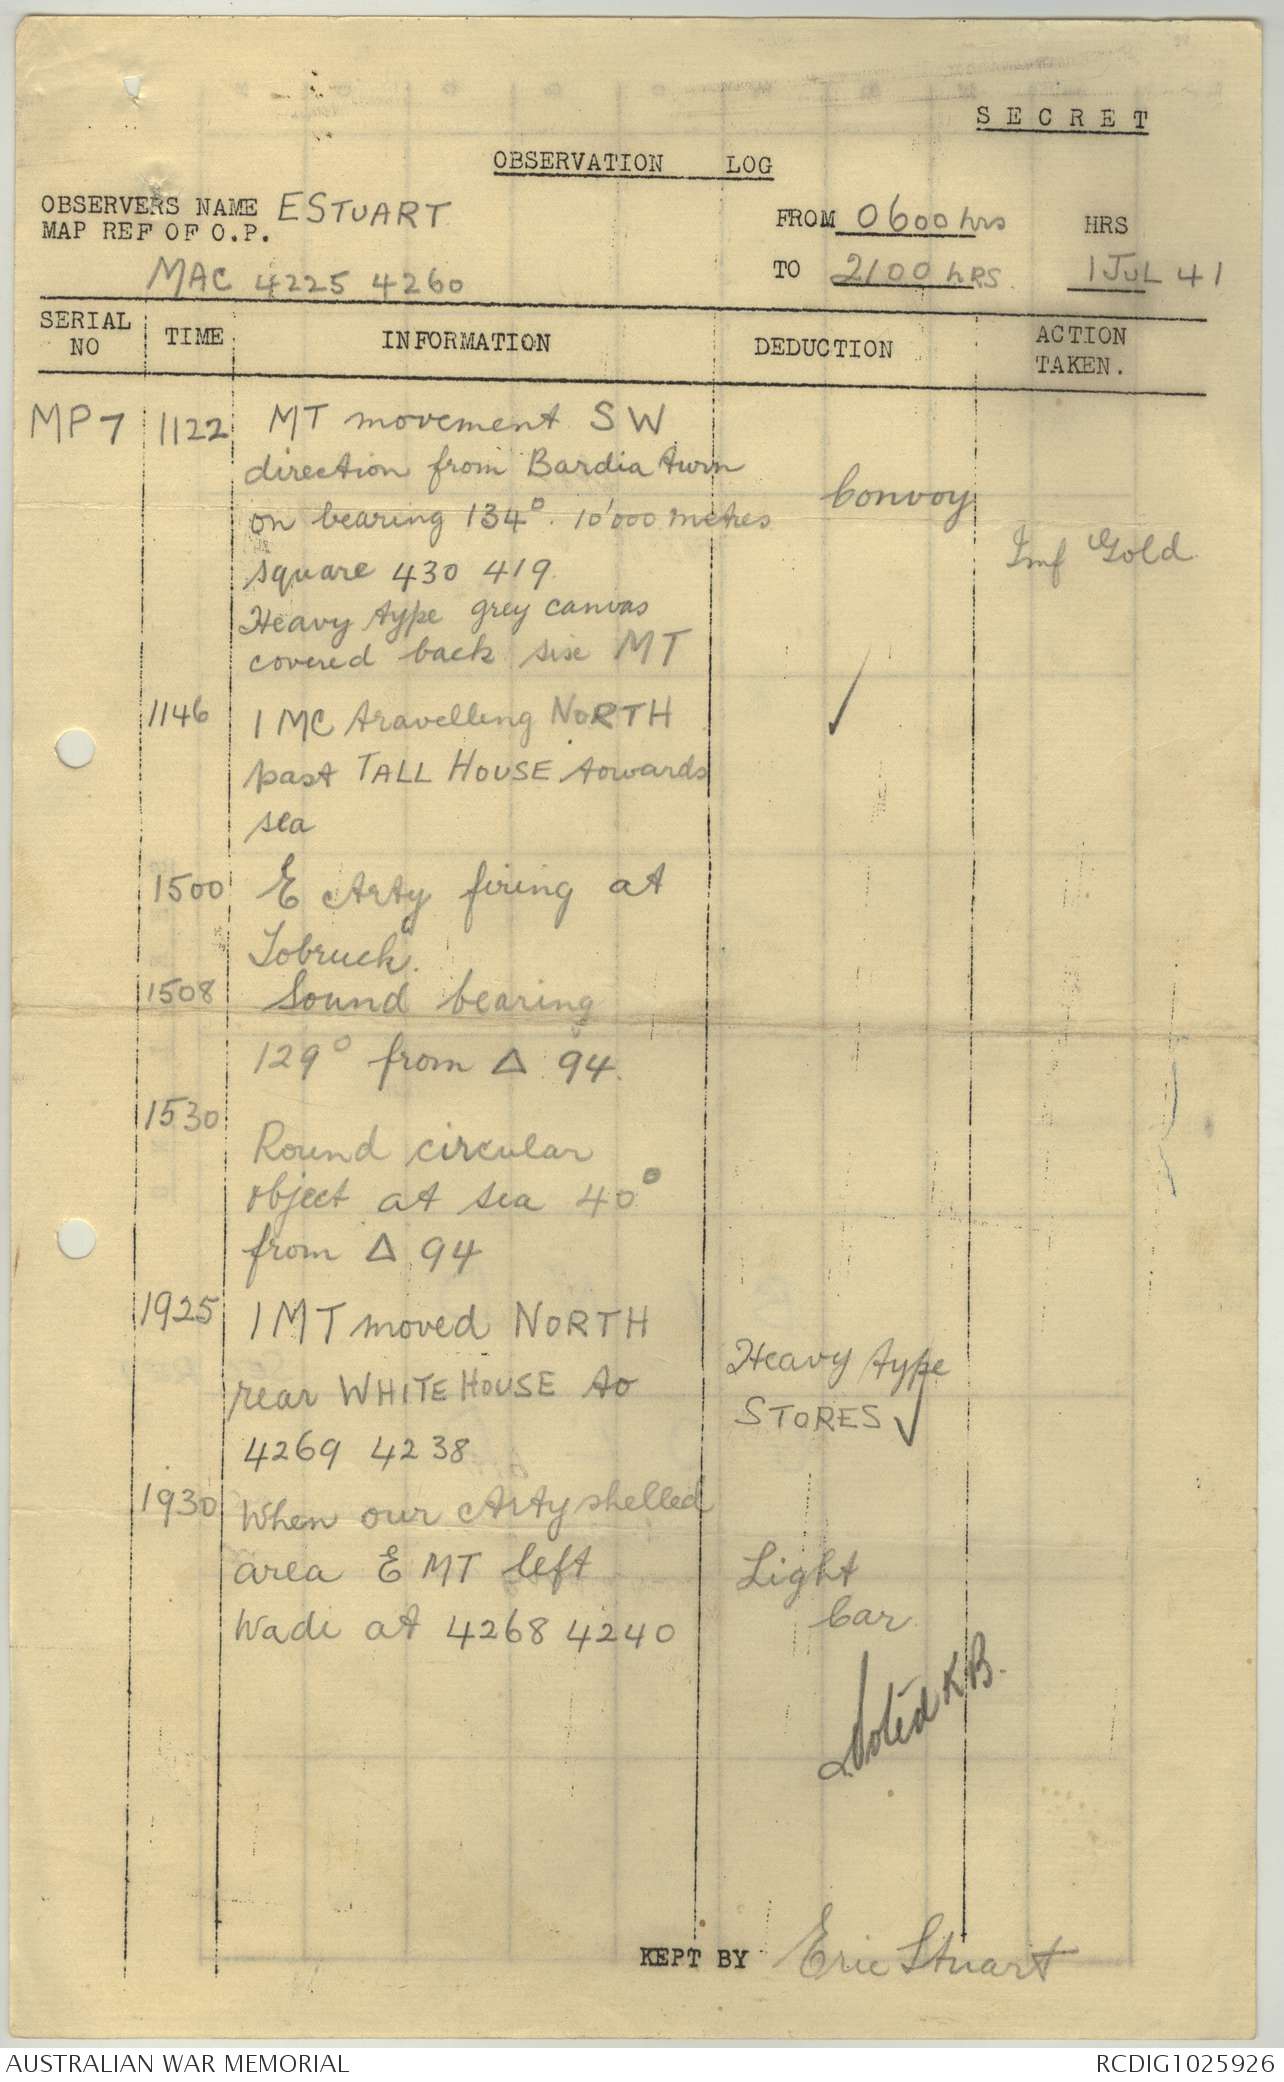 SECRET
OBSERVATION LOG
OBSERVERS NAME ESTUART
MAP REF OF O.P.
MAC 4225 4260
FROM 0600 hrs HRS
TO 2100 hRS. 1 JUL 41
SERIAL NO
TIME
INFORMATION
DEDUCTION
ACTION TAKEN.
MP7 1122 MT movement SW
direction from Bardia turn
on bearing 134°. 10'000 metres
square 430 419
Heavy type grey canvas
covered back six MT
Convoy
Inf Gold
1146 1 MC travelling NORTH
past TALL HOUSE towards
sea
1500 E Arty firing at
Tobruck.
1508 Sound bearing
129° from Δ 94.
1530
Round circular
object at sea 40°
from Δ 94
1925 1 MT moved NORTH
rear WHITE HOUSE to
4269 4238
Heavy type
STORES
1930 When our Arty shelled
area E MT left
Wadi at 4268 4240
Light
Car
Noted KB.
KEPT BY Eric Stuart
AUSTRALIAN WAR MEMORIAL
RCDIG1025926